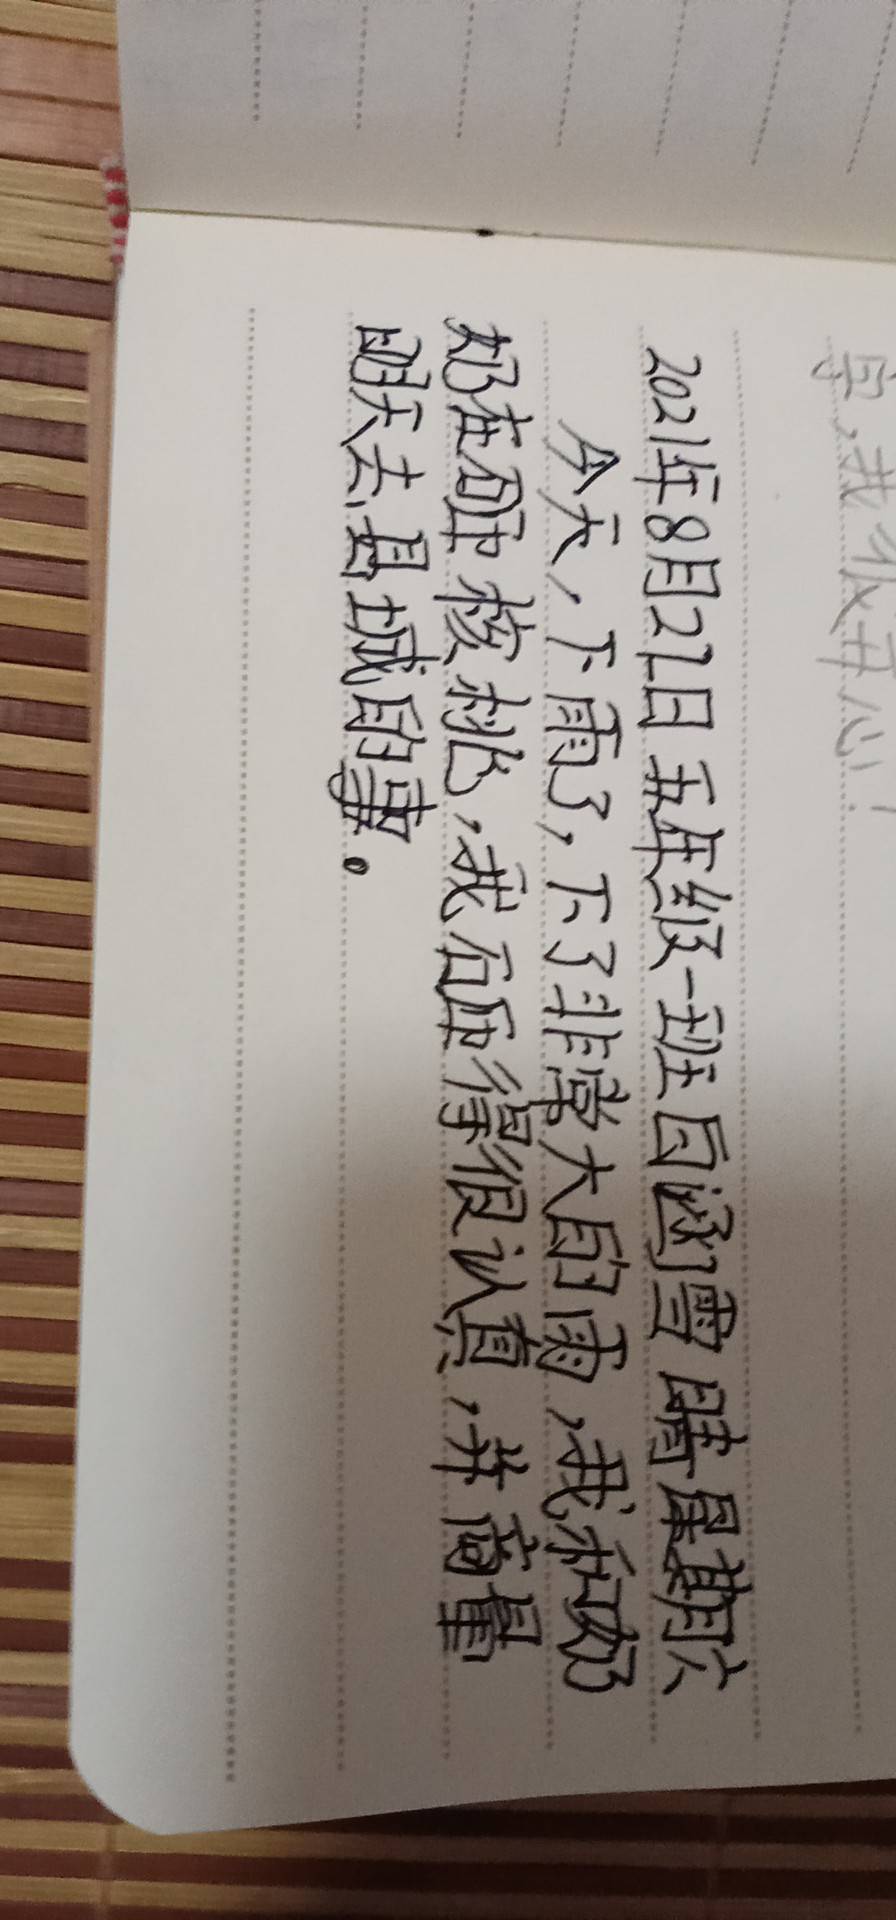 我很开心!
2021年8月21日 五年级一班 白涵雪 晴 星期六
今天,下雨了,下了非常大的雨,我和奶
奶在砸核桃,我砸得很认真,并商量
明天去县城的事。